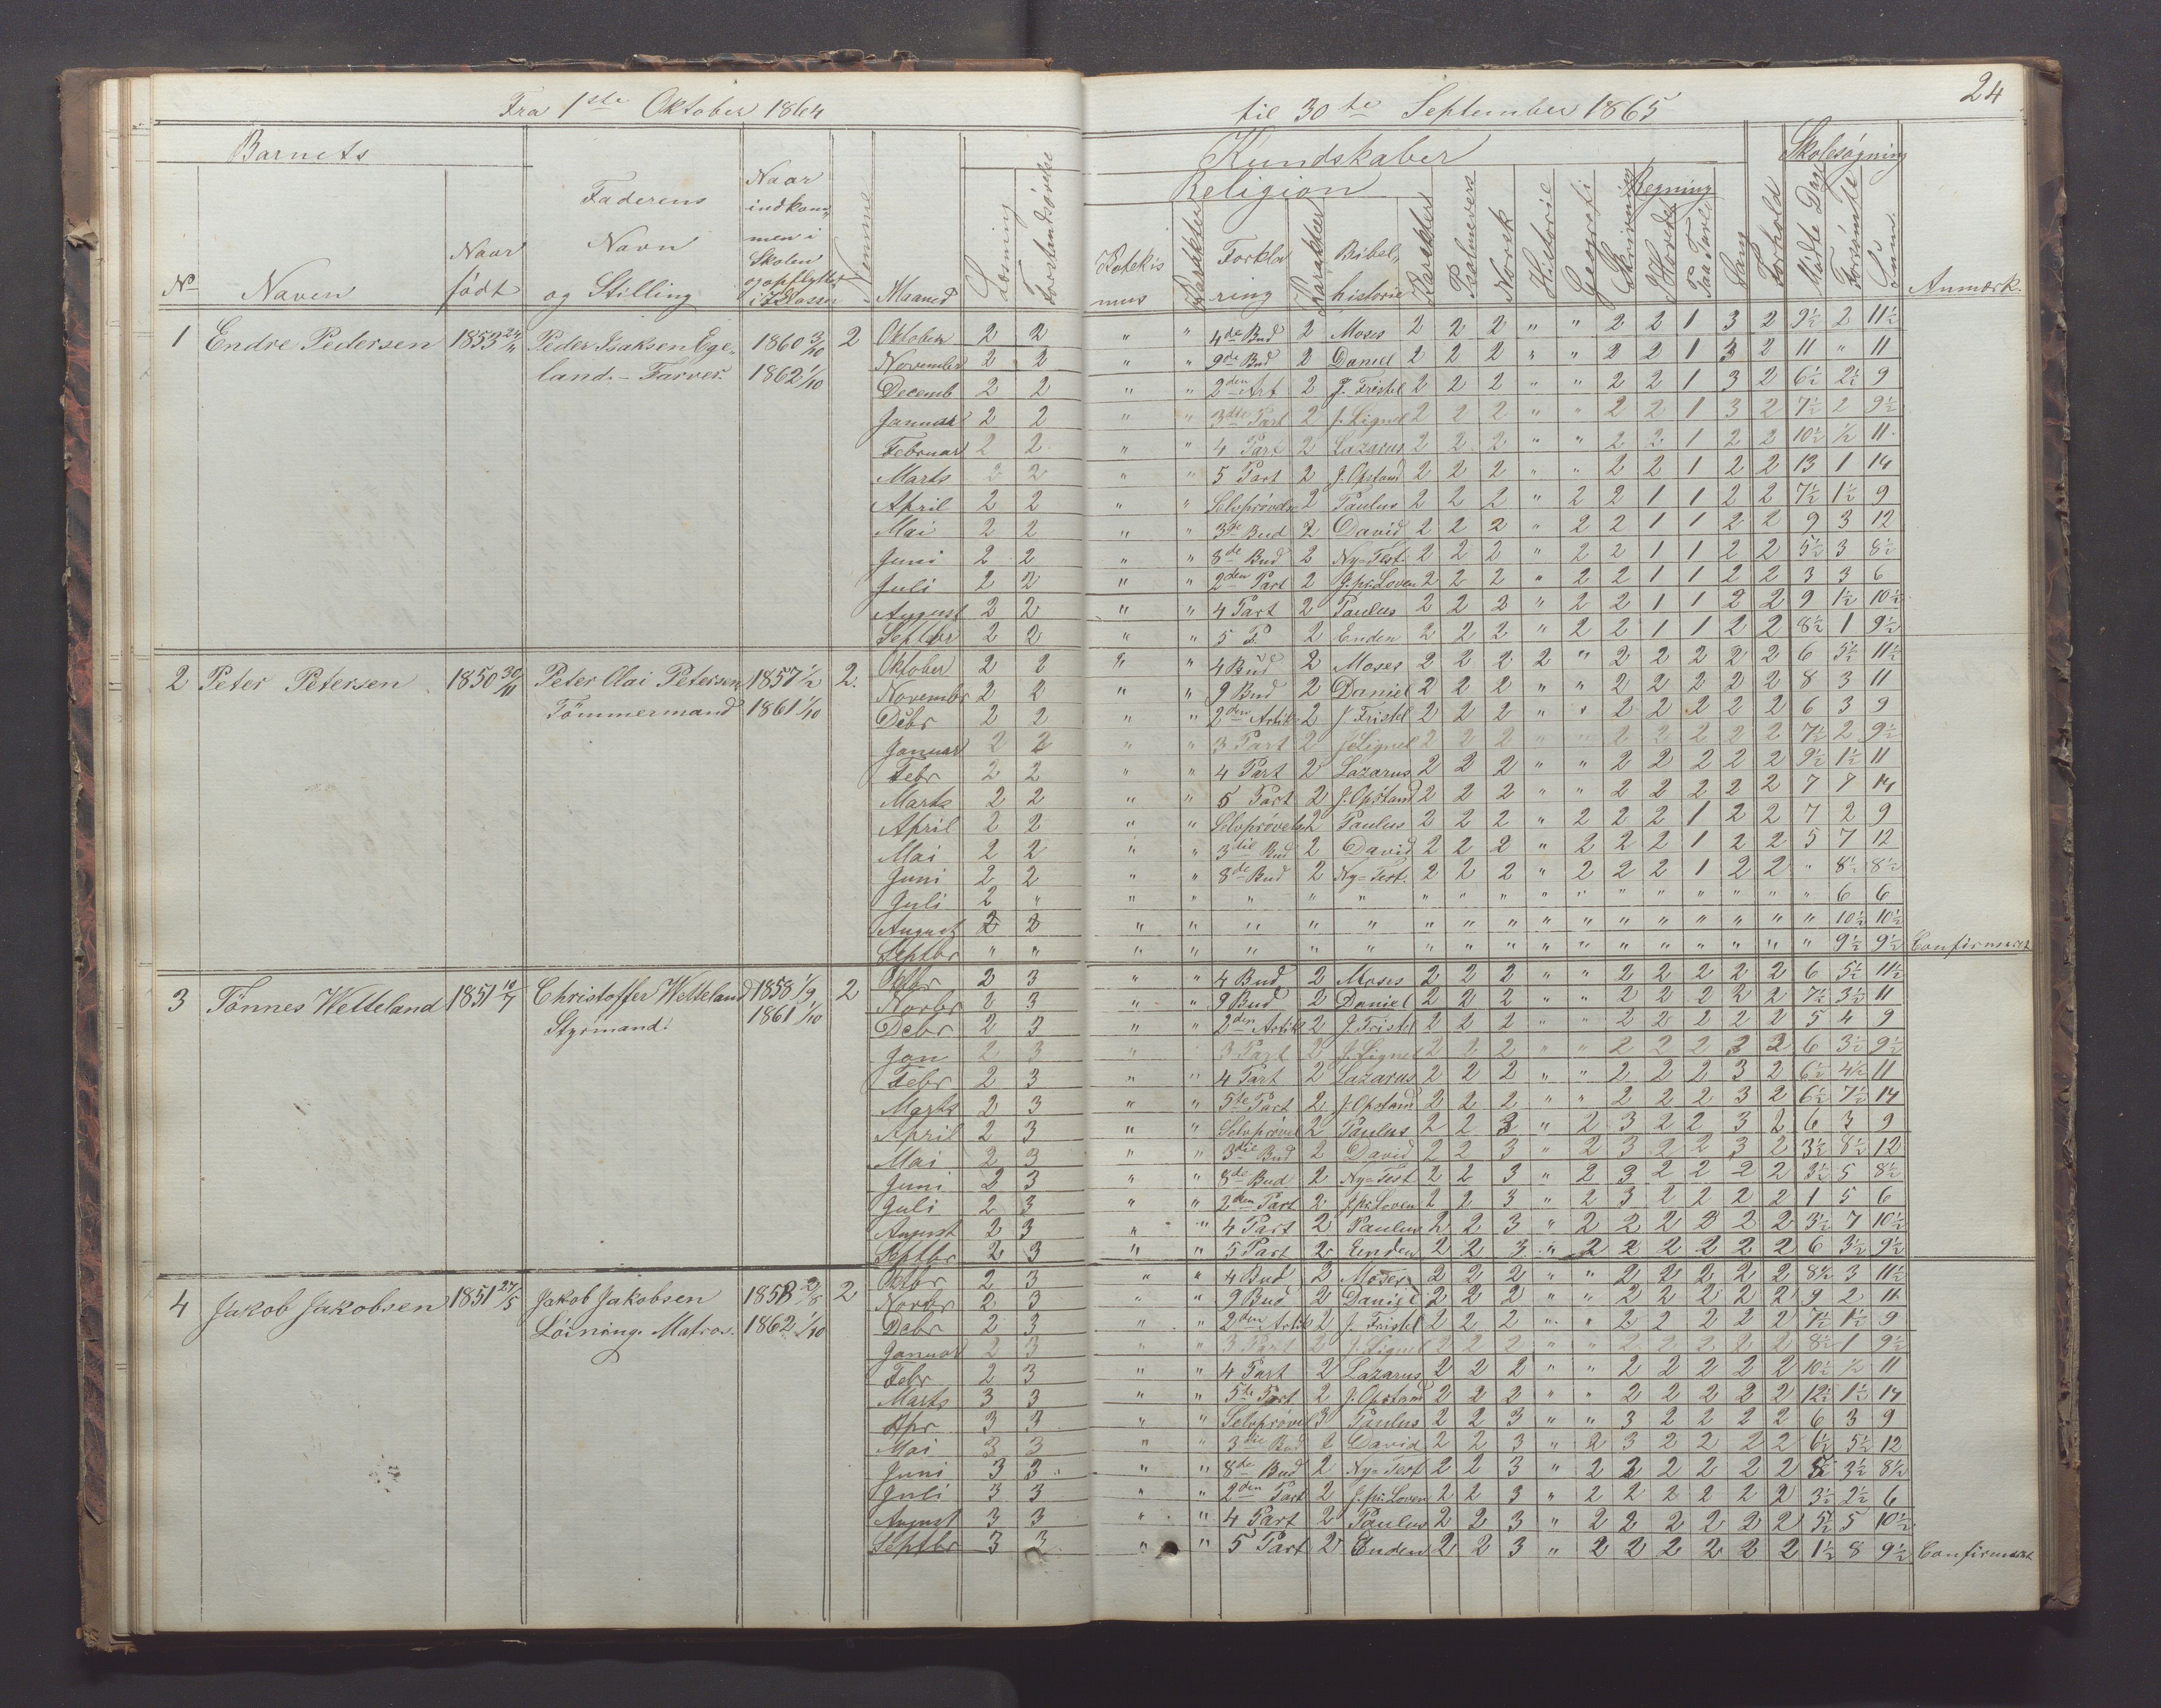 24
Fra 1ste Oktober 1864 til 30te September 1865
Barnets Kundskaber Skolesøgning
Religion Regning
No Naven Naar født Faderens Navn og Stilling Naar indkommen i Skolen og opflyttet i 2 Klasse Nemme Maaned Læsning Forstandsøvelse Katekismus Karakter Forklaring Karakter Bibelhistorie Karakter Psalmevers Norsk Historie Geografi Skrivning I Hovedet Paa Tavle Sang Forhold Mødte Dage Forsømte Sum. Anmærk.
1 Endre Pedersen 1853 Peder Isaksen Ege- 1860 3/10 2 Oktober 2 2 " " 4de Bud 2 Moses 2 2 2 " " 2 2 1 3 2 9½ 2 11½
land. - Farver. 1862 1/10 November 2 2 " " 9de Bud 2 Daniel 2 2 2 " " 2 2 1 3 2 11 " 11
Decemb 2 2 " " 2den Art 2 J. Fristel 2 2 2 " " 2 2 1 3 2 6½ 2½ 9
Januar 2 2 " " 3die Part 2 J. Lignel 2 2 2 " " 2 2 1 3 2 7½ 2 9½
Februar 2 2 " " 4 Part 2 Lazarus 2 2 2 " " 2 2 1 2 2 10½ ½ 11
Marts 2 2 " " 5 Part 2 J. Opstand 2 2 2 " " 2 2 1 2 2 13 1 14
April 2 2 " " Selvprøvelse 2 Paulus 2 2 2 " 2 2 1 1 2 2 7½ 1½ 9
Mai 2 2 " " 3de Bud 2 David 2 2 2 " 2 2 1 1 2 2 9 3 12
Juni 2 2 " " 8de Bud 2 Ny=Test. 2 2 2 " 2 2 1 1 2 2 5½ 3 8½
Juli 2 2 " " 2den Part 2 J.pr.Loven 2 2 2 " 2 2 1 1 2 2 3 3 6
August 2 2 " " 4 Part 2 Paulus 2 2 2 " 2 2 1 1 2 2 9 1½ 10½
Septbr 2 2 " " 5 P. 2 Enden 2 2 2 " 2 2 1 1 2 2 8½ 1 9½
2 Peter Petersen 1850 30/11 Peter Olai Petersen 1857 ½ 2. Oktober 2 2 " " 4 Bud 2 Moses 2 2 2 2 " 2 2 2 2 2 6 5½ 11½
Tömmermand 1861 1/10 Novembr 2 2 " " 9 Bud 2 Daniel 2 2 2 " " 2 2 2 2 2 8 3 11
Debr 2 2 " " 2den Artik 2 J. Fristel 2 2 2 " " 2 2 2 2 2 6 3 9
Januar 2 2 " " 3 Part 2 J. Lignel 2 2 2 " " 2 2 2 2 2 7½ 2 9½
Febr 2 2 " " 4 Part 2 Lazarus 2 2 2 " " 2 2 2 2 2 9½ 1½ 11
Marts 2 2 " " 5 Part 2 J. Opstand 2 2 2 " " 2 2 2 2 2 7 7 14
April 2 2 " " Selvprøvelse 2 Paulus 2 2 2 " 2 2 2 1 2 2 7 2 9
Mai 2 2 " " 3die Bud 2 David 2 2 2 " 2 2 2 1 2 2 5 7 12
Juni 2 2 " " 8de Bud 2 Ny=Test. 2 2 2 " 2 2 2 1 2 2 " 8½ 8½
Juli 2 " " " " " " " " " " " " " " " " " 6 6
August 2 2 " " " " " " " " " " " " " " " " 10½ 10½
Septbr " " " " " " " " " " " " " " " " " " 9½ 9½ Confirmeret
3 Tønnes Wetteland 1851 10/7 Christoffer Wetteland 1858 1/9 2 Octbr 2 3 " " 4 Bud 2 Moses 2 2 2 " " 2 2 2 2 2 6 5½ 11½
Styrmand. 1861 1/10 Novbr 2 3 " " 9 Bud 2 Daniel 2 2 2 " " 2 2 2 2 2 7½ 3½ 11
Debr 2 3 " " 2den Artik 2 J. Fristel 2 2 2 " " 2 2 2 2 2 5 4 9
Jan 2 3 " 3 Part 2 J. Lignel 2 2 2 " " 2 2 2 3 2 6 3½ 9½
Febr 2 3 " " 4 Part 2 Lazarus 2 2 2 " " 2 2 2 3 2 6½ 4½ 11
Marts 2 3 " " 5te Part 2 J. Opstand 2 2 2 " " 2 2 2 3 2 6½ 7½ 14
April 2 3 " " Selvprøvel 2 Paulus 2 2 3 " 2 3 2 2 3 2 6 3 9
Mai 2 3 " " 3die Bud 2 David 2 2 3 " 2 3 2 2 3 2 3½ 8½ 12
Juni 2 3 " " 8de Bud 2 Ny=Test 2 2 3 " 2 3 2 2 2 2 3½ 5 8½
Juli 2 3 " " 2den Part 2 J.pr.Loven 2 2 3 " 2 3 2 2 2 2 1 5 6
August 2 3 " " 4 Part 2 Paulus 2 2 3 " 2 2 2 2 2 2 3½ 7 10½
Septbr 2 3 " " 5 Part 2 Enden 2 2 3 " 2 2 2 2 2 2 6 3½ 9½
4 Jakob Jakobsen 1851 27/5 Jakob Jakobsen 1858 2/8 2 Octbr 2 3 " " 4 Bud 2 Moses 2 2 2 " " 2 2 2 2 2 8½ 3 11½
Löining. Matros. 1862 1/10 Novbr 2 3 " " 9 Bud 2 Daniel 2 2 2 " " 2 2 2 2 2 9 2 11
Debr 2 3 " " 2den Artik 2 J. Fristel 2 2 2 " " 2 2 2 2 2 7½ 1½ 9
Januar 2 3 " " 3 Part 2 J. Lignel 2 2 2 " " 2 2 2 2 2 8½ 1 9½
Febr 2 3 " " 4 Part 2 Lazarus 2 2 2 " " 2 2 2 2 2 10½ ½ 11
Marts 3 3 " " 5te Part 2 J. Opstand 2 2 2 " " 2 2 2 2 2 12½ 1½ 14
Apr 3 3 " " Selvprøvel 3 Paulus 2 2 3 " " 3 2 2 2 2 6 3 9
Mai 3 3 " " 3die Bud 2 David 2 2 3 " 2 3 2 2 2 2 6½ 5½ 12
Juni 3 3 " " 8de Bud 2 Ny=Test 2 2 3 " 2 2 2 2 2 2 5 3½ 8½
Juli 3 3 " " 2den Part 2 J.pr.Loven 2 2 3 " 2 2 2 2 2 2 3½ 2½ 6
August 3 3 " " 4 Part 2 Paulus 2 2 3 " 2 2 2 2 2 2 5½ 5 10½
Septbr 3 3 " " 5 Part 2 Enden 2 2 3 " 2 2 2 2 2 2 1½ 8 9½ Confirmeret